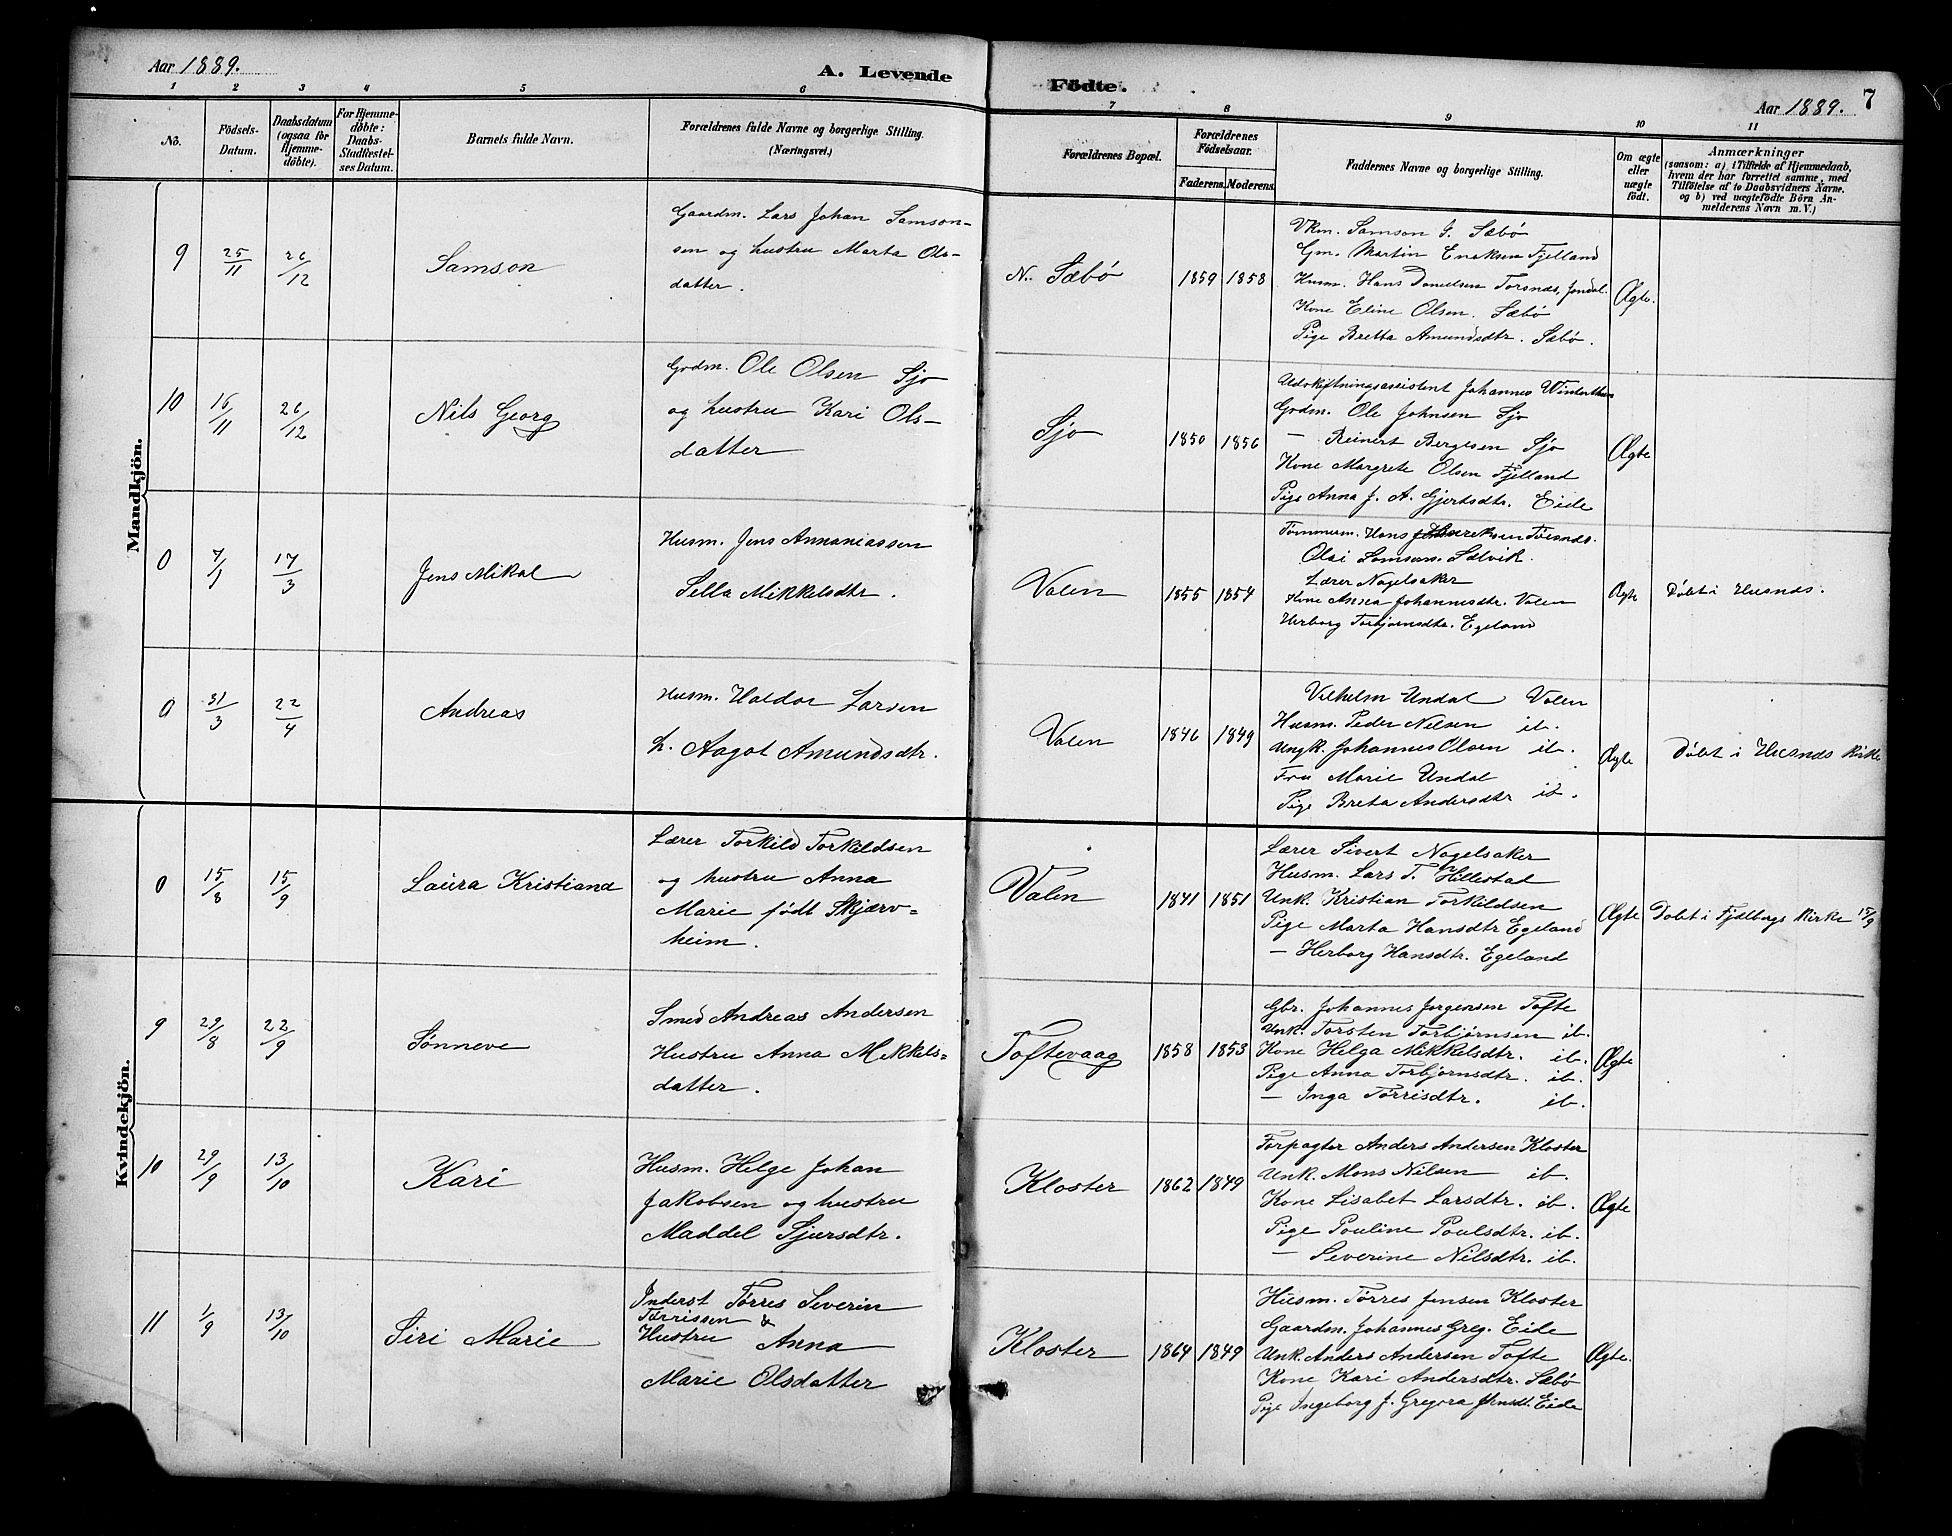 Aar 1889.
A. Levende
Födte.
Aar 1889.
7
1 2 3 4 5 6 7 8 9 10 11
No.
Födsels-Datum.
Daabsdatum (ogsaa for Hjemmedöbte).
For Hjemmedöbte: Daabs-Stadfæstelses Datum.
Barnets fulde Navn.
Forældrenes fulde Navne og borgerlige Stilling. (Næringsvei.)
Forældrenes Bopæl.
Forældrenes Födselsaar.
Faderens. Moderens.
Faddernes Navne og borgerlige Stilling.
Om ægte eller uægte födt.
Anmærkninger
(saasom: a) i Tilfælde af Hjemmedaab, hvem der har forrettet samme, med Tilföielse af to Daabsvidners Navne, og b) ved uægtefödte Börn Anmelderens Navn m. V.)
Mandkjön.
9 25/11 26/12 Samson
Gaardm. Lars Johan Samson-
sen og hustru Marta Ols-
datter.
N. Sæbø 1859 1858
Vkm. Samson J. Sæbø
Gm. Martin Enoksen Fjelland
Husm. Hans Danielsen Torsnæs, Jondal.
Kone Eline Olsen. Sæbø
Pige Bretta Amundsdtr. Sæbø.
Ægte.
10 16/11 26/12 Nils Georg
Grdm. Ole Olsen Sjo
og hustru Kari Ols-
datter
Sjo 1850 1856
Udskiftningsassistent Johannes
Grdm. Ole Johnsen Sjo
— Reinert Bergesen Sjo
Kone Margrete Olsen Fjelland
Pige Anna J. A. Gjertsdtr. Eide
Ægte
0 7/1 17/3 Jens Mikal
Husm. Jens Annaniassen
Sella Mikkelsdtr.
Valen 1855 1854
Tømmerm. Hans
Olai Samsons. Sælvik.
Lærer Nagelsaker
Kone Anna Johannesdtr. Valen
Herborg Torbjørnsdtr. Egeland
Ægte Døbt i Husnæs.
0 31/3 22/4 Andreas
Husm. Haldor Larsen
h. Aagot Amundsdtr.
Valen 1846 1849
Vilhelm Undal Valen
Husm. Peder Nilsen ib.
Ungk. Johannes Olsen ib.
Fru Marie Undal
Pige Breta Andersdtr ib.
Ægte Døbt i Husnæs Kirke
Kvindekjön.
0 15/8 15/9 Laura Kristiand
Lærer Torkild Torkildsen
og hustru Anna
Marie født Skjærv-
heim.
Valen 1841 1851
Lærer Sivert Nagelsaker
Husm. Lars T. Hillestad
Unk. Kristian Torkildsen
Pige Marta Hansdtr Egeland
— Herborg Hansdtr. Egeland
Ægte Døbt i Fjælbergs Kirke 15/9
9 29/8 22/9 Sønneve
Smed Andreas Andersen
Hustru Anna Mikkels-
datter.
Toftevaag 1858 1853
Gbr. Johannes Jørgensen Tofte
Unk. Torsten Torbjørnsen ib.
Kone Helga Mikkelsdtr. ib.
Pige Anna Torbjørnsdtr. ib.
— Inga Tørrisdtr. ib.
Ægte
10 29/9 13/10 Kari
Husm. Helge Johan
Jakobsen og hustru
Maddel Sjursdtr.
Kloster 1862 1849
Forpagter Anders Andersen Kloster
Unk. Mons Nilsen ib.
Kone Lisabet Larsdtr. ib.
Pige Pouline Poulsdtr. ib.
— Severine Nilsdtr. ib.
Ægte
11 1/9 13/10 Siri Marie
Inderst Tørres Severin
Tørrissen &
Hustru Anna
Marie Olsdatter
Kloster 1864 1849
Husm. Tørres Jensen Kloster
Gaardm. Johannes Greg. Eide
Unk. Anders Andersen Tofte
Kone Kari Andersdtr. Sæbø
Pige Ingeborg J. Eide
Ægte.